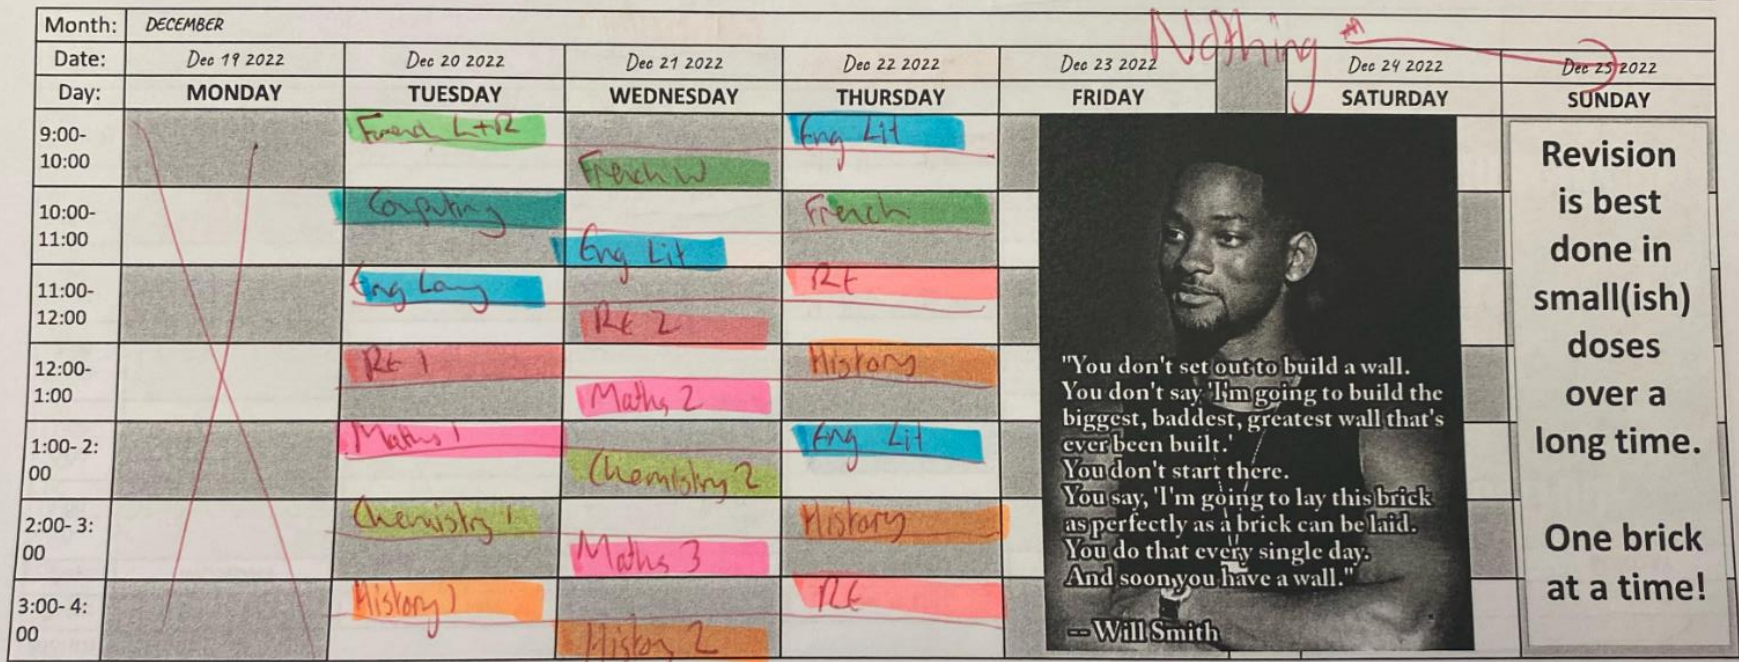 Month: DECEMBER
Nothing
Date: Dec 19 2022 Dec 20 2022 Dec 21 2022 Dec 22 2022 Dec 23 2022 Dec 24 2022 Dec 25 2022
Day: MONDAY TUESDAY WEDNESDAY THURSDAY FRIDAY SATURDAY SUNDAY
9:00-
10:00
French L+R
French W
Eng Lit
10:00-
11:00
Computing
Eng Lit
French
11:00-
12:00
Eng Lang
RE 2
RE
12:00-
1:00
RE 1
Maths 2
History
1:00- 2:
00
Maths 1
Chemistry 2
Eng Lit
2:00- 3:
00
Chemistry 1
Maths 3
History
3:00- 4:
00
History 1
History 2
RE
"You don't set out to build a wall.
You don't say 'I'm going to build the
biggest, baddest, greatest wall that's
ever been built.'
You don't start there.
You say, 'I'm going to lay this brick
as perfectly as a brick can be laid.
You do that every single day.
And soon you have a wall."
-- Will Smith
Revision
is best
done in
small(ish)
doses
over a
long time.
One brick
at a time!